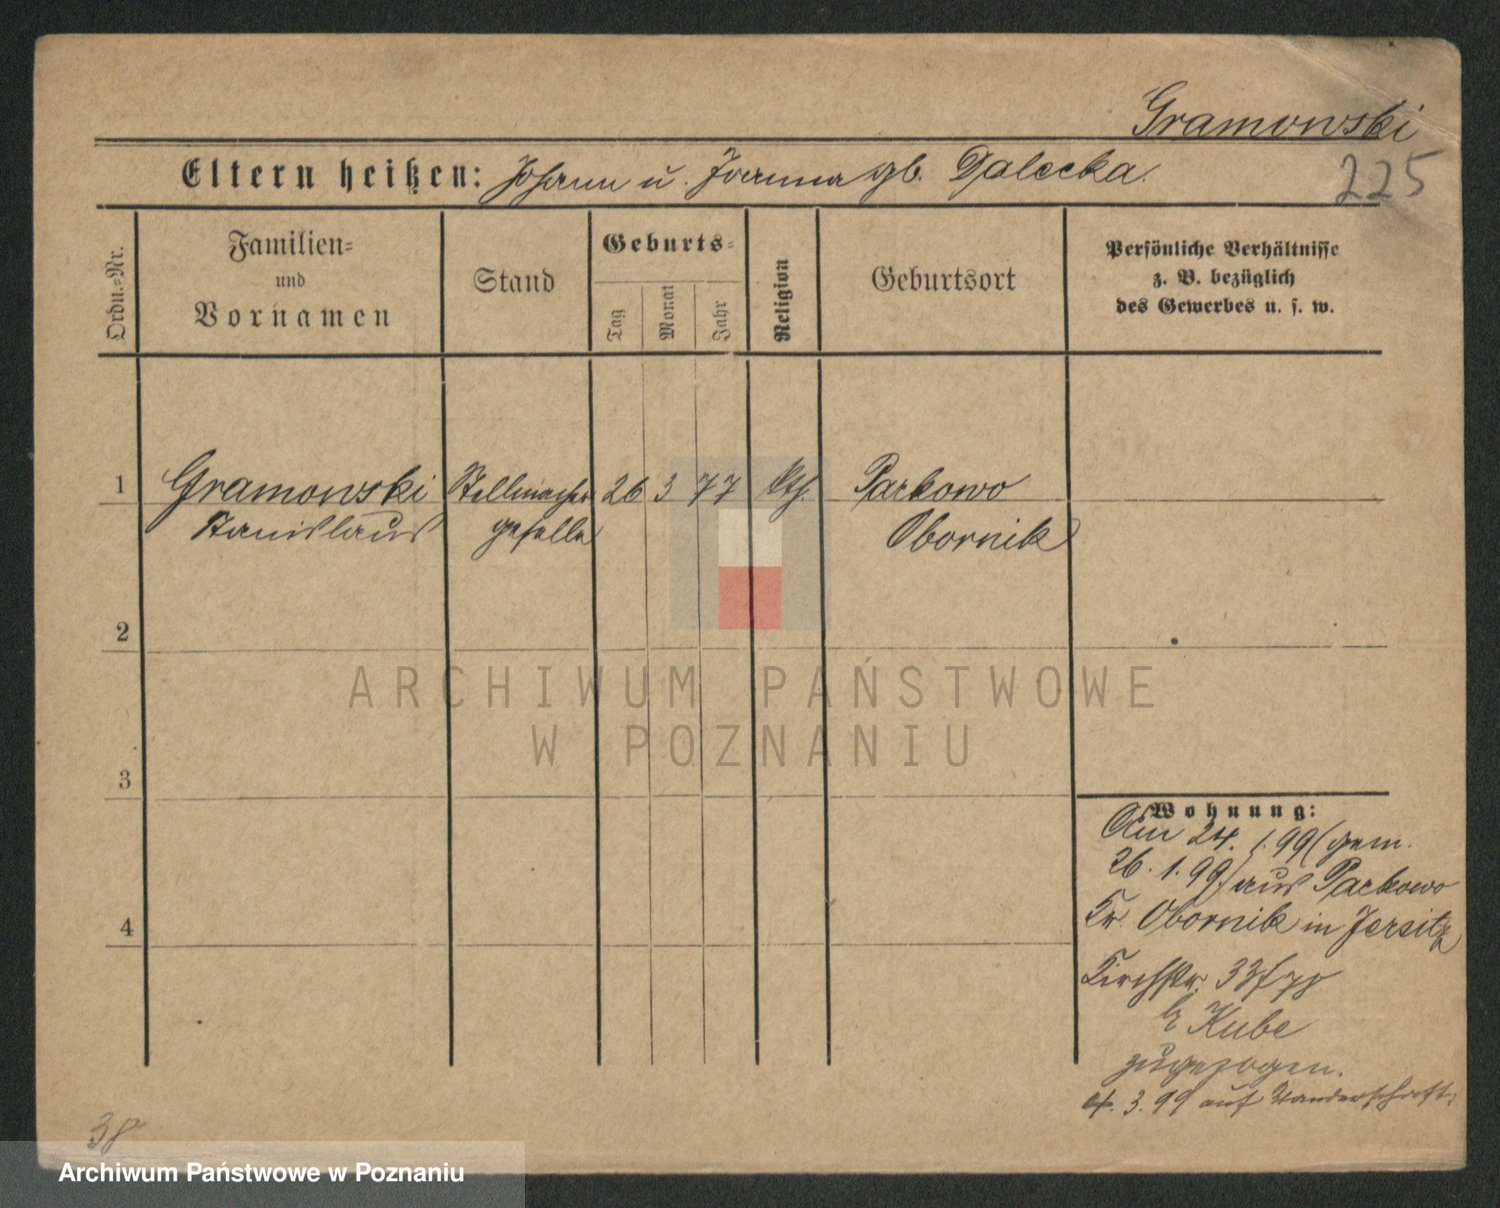 Gramowski
225
Eltern heißen: Johann u. Joanna gb. Dalecka.
Ordn.-Nr.
Familien-
und
Vornamen
Stand
Geburts-
Tag
Monat
Jahr
Religion
Geburtsort
Persönliche Verhältnisse
z. B. bezüglich
des Gewerbes u. s. w.
1 Gramowski Stellmacher 26 3 77 kth. Parkowo
Stanislaus geselle Obornik
2
ARCHIWUM PAŃSTWOWE
W POZNANIU
3
Wohnung:
Am 24. 1. 99 (gem.
26. 1. 99) aus Parkowo
Kr. Obornik in Jersitz
4
Kirchstr. 33
Kube
zugezogen.
4. 3. 99 auf Wanderschaft.
38
Archiwum Państwowe w Poznaniu